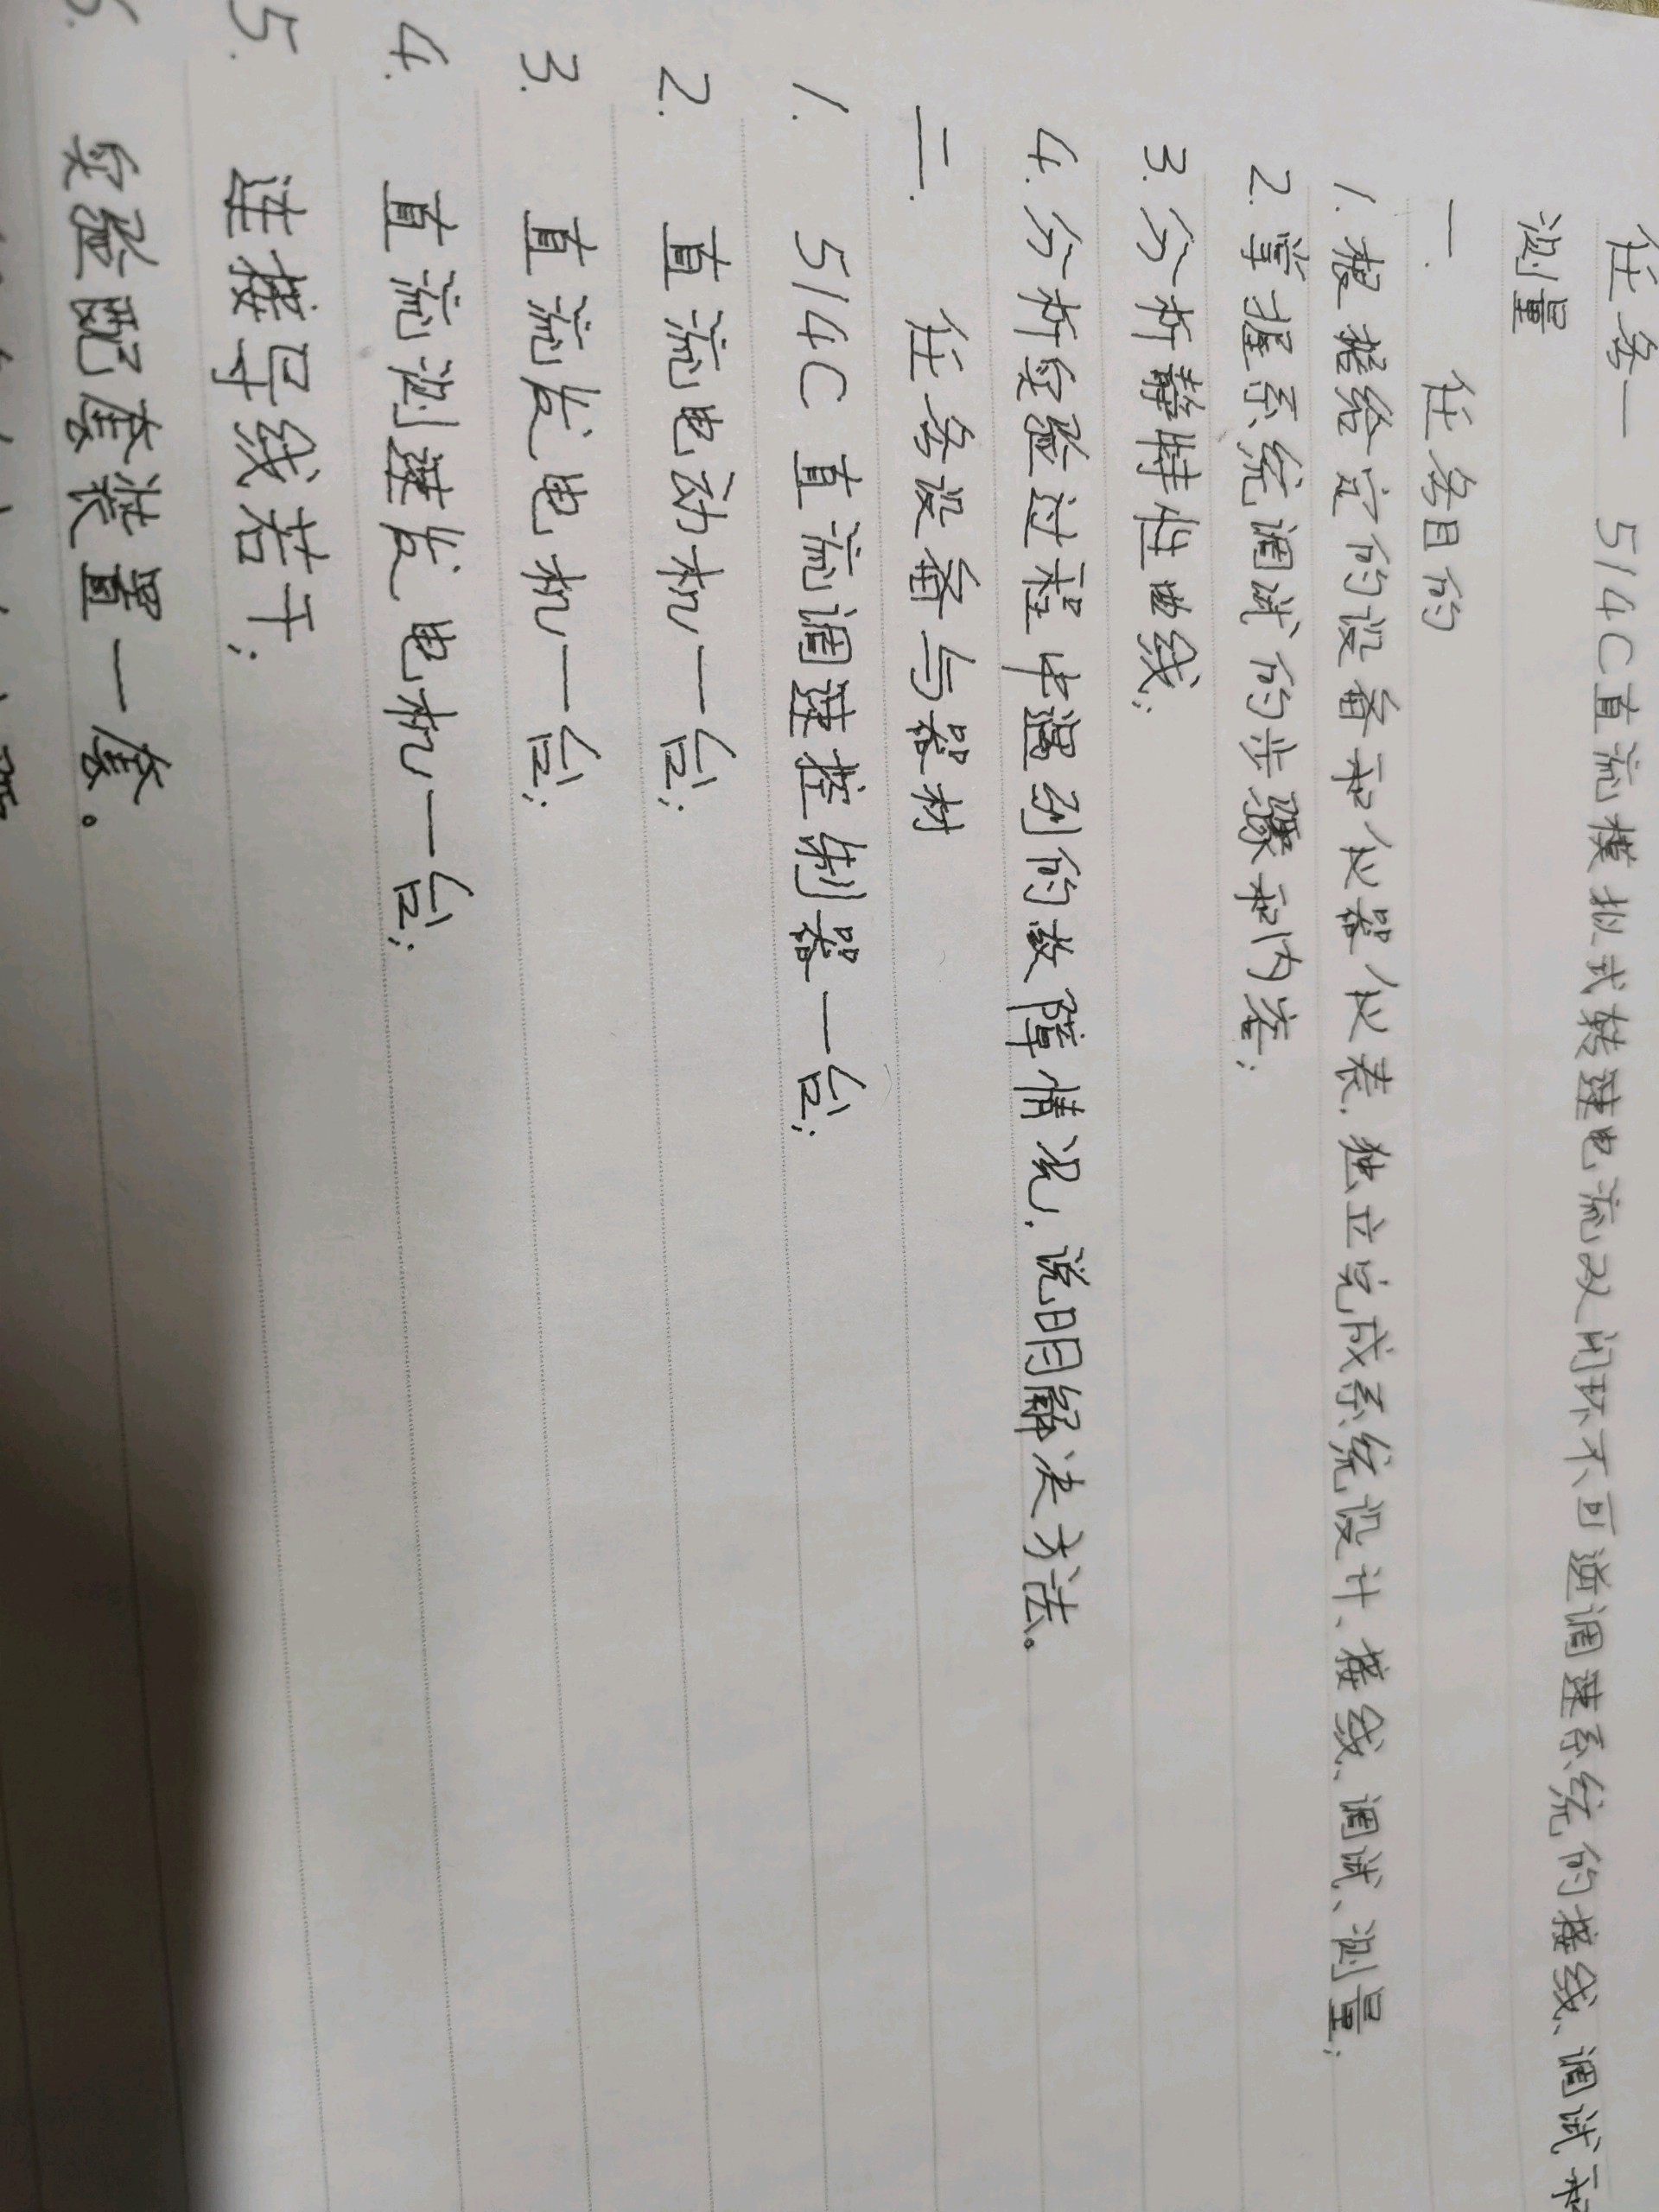 任务一 514C直流模拟式转速电流双闭环不可逆调速系统的接线、调试和
测量
一. 任务目的
1. 根据给定的设备和仪器仪表, 独立完成系统设计、接线、调试、测量;
2. 掌握系统调试的步骤和内容;
3. 分析静特性曲线;
4. 分析实验过程中遇到的故障情况, 说明解决方法。
二. 任务设备与器材
1. 514C 直流调速控制器一台;
2. 直流电动机一台;
3. 直流发电机一台;
4. 直流测速发电机一台;
5. 连接导线若干;
6. 实验配套装置一套。